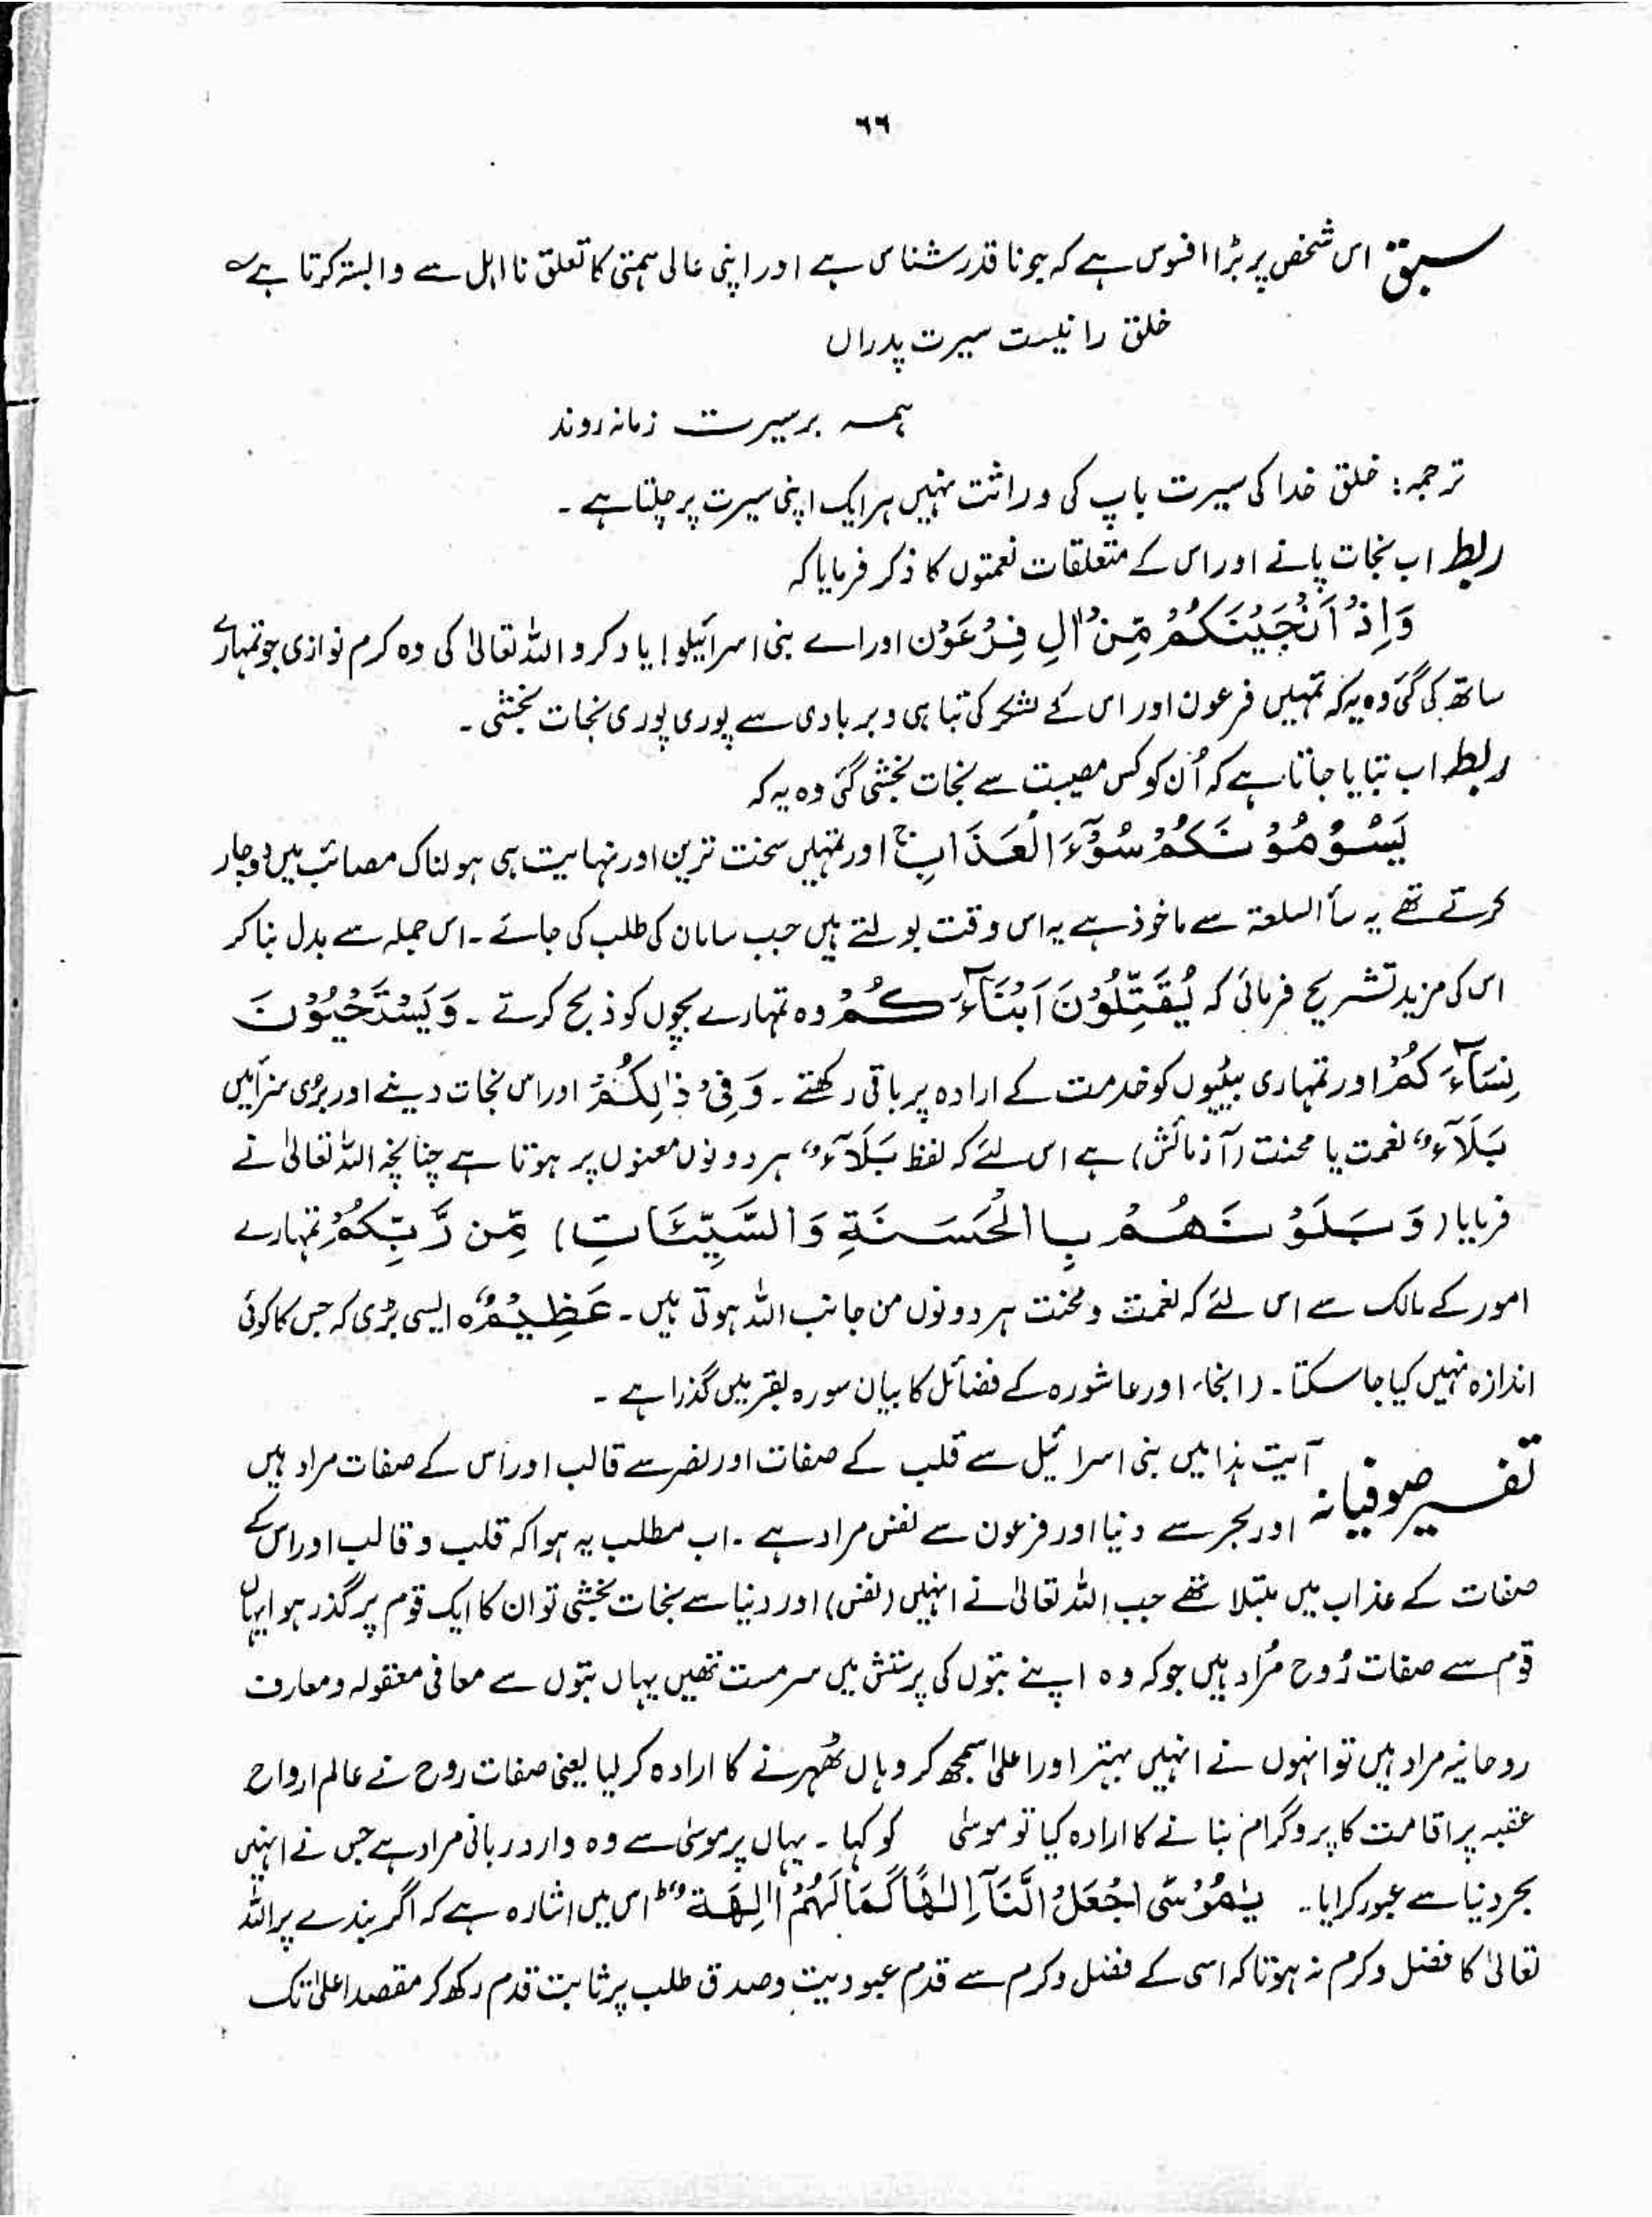 ۶۶
سبق اس شخص پر بڑا افسوس ہے کہ جو نا قدر شناس ہے اور اپنی عالی ہمتی کا تعلق نا اہل سے وابستہ کرتا ہے ؎
خلق را نیست سیرت پدراں
ہمہ بر سیرت زمانہ روند
ترجمہ : خلق خدا کی سیرت باپ کی وراثت نہیں ہر ایک اپنی سیرت پر چلتا ہے ۔
ربط اب نجات پانے اور اس کے متعلقات نعمتوں کا ذکر فرمایا کہ
وَاِذْ اَنْجَيْنٰكُمْ مِّنْ اٰلِ فِرْعَوْن اور اے بنی اسرائیلو ! یاد کرو اللہ تعالیٰ کی وہ کرم نوازی جو تمہارے
ساتھ کی گئی وہ یہ کہ تمہیں فرعون اور اس کے لشکر کی تباہی و بربادی سے پوری پوری نجات بخشی ۔
ربط اب بتایا جاتا ہے کہ اُن کو کس مصیبت سے نجات بخشی گئی وہ یہ کہ
يَسُوْمُوْنَكُمْ سُوْٓءَ الْعَذَابِ ج اور تمہیں سخت ترین اور نہایت ہی ہولناک مصائب میں دوچار
کرتے تھے یہ سأ السلعۃ سے ماخوذ ہے یہ اس وقت بولتے ہیں جب سامان کی طلب کی جائے ۔ اس جملہ سے بدل بنا کر
اس کی مزید تشریح فرمائی کہ يُقَتِّلُوْنَ اَبْنَآءَكُمْ وہ تمہارے بچوں کو ذبح کرتے ۔ وَيَسْتَحْيُوْنَ
نِسَآءَكُمْ اور تمہاری بیٹیوں کو خدمت کے ارادہ پر باقی رکھتے ۔ وَفِیْ ذٰلِكُمْ اور اس نجات دینے اور بڑی سزا میں
بَلَآءٌ نعمت یا محنت (آزمائش) ہے اس لئے کہ لفظ بَلَآءٌ ہر دونوں معنوں پر ہوتا ہے چنانچہ اللہ تعالیٰ نے
فرمایا (وَبَلَوْنٰهُمْ بِالْحَسَنَةِ وَالسَّيِّئَاتِ) مِّنْ رَّبِّكُمْ تمہارے
امور کے مالک سے اس لئے کہ نعمت و محنت ہر دونوں من جانب اللہ ہوتی ہیں ۔ عَظِيْمٌ ہ ایسی بڑی کہ جس کا کوئی
اندازہ نہیں کیا جا سکتا ۔ (انجاء اور عاشورہ کے فضائل کا بیان سورہ بقر میں گذرا ہے ۔
تفسیر صوفیانہ آیت ہذا میں بنی اسرائیل سے قلب کے صفات اور لضر سے قالب اور اس کے صفات مراد ہیں
اور بحر سے دنیا اور فرعون سے نفس مراد ہے ۔ اب مطلب یہ ہوا کہ قلب و قالب اور اس کے
صفات کے عذاب میں مبتلا تھے جب اللہ تعالیٰ نے انہیں (نفس) اور دنیا سے نجات بخشی تو ان کا ایک قوم پر گذر ہوا یہاں
قوم سے صفات رُوح مُراد ہیں جو کہ وہ اپنے بتوں کی پرستش میں سرمست تھیں یہاں بتوں سے معانی معقولہ و معارف
روحانیہ مراد ہیں تو انہوں نے انہیں بہتر اور اعلیٰ سمجھ کر وہاں ٹھہرنے کا ارادہ کر لیا یعنی صفات روح نے عالم ارواح
عقبہ پر اقامت کا پروگرام بنانے کا ارادہ کیا تو موسیٰ کو کہا ۔ یہاں پر موسیٰ سے وہ وارد ربانی مراد ہے جس نے انہیں
بحر دنیا سے عبور کرایا .. يٰمُوْسَى اجْعَلْ لَّنَآ اِلٰهًا كَمَا لَهُمْ اٰلِهَةٌ ط اس میں اشارہ ہے کہ اگر بندے پر اللہ
تعالیٰ کا فضل و کرم نہ ہوتا کہ اسی کے فضل و کرم سے قدم عبودیت و صدق طلب پر ثابت قدم رکھ کر مقصد اعلیٰ تک